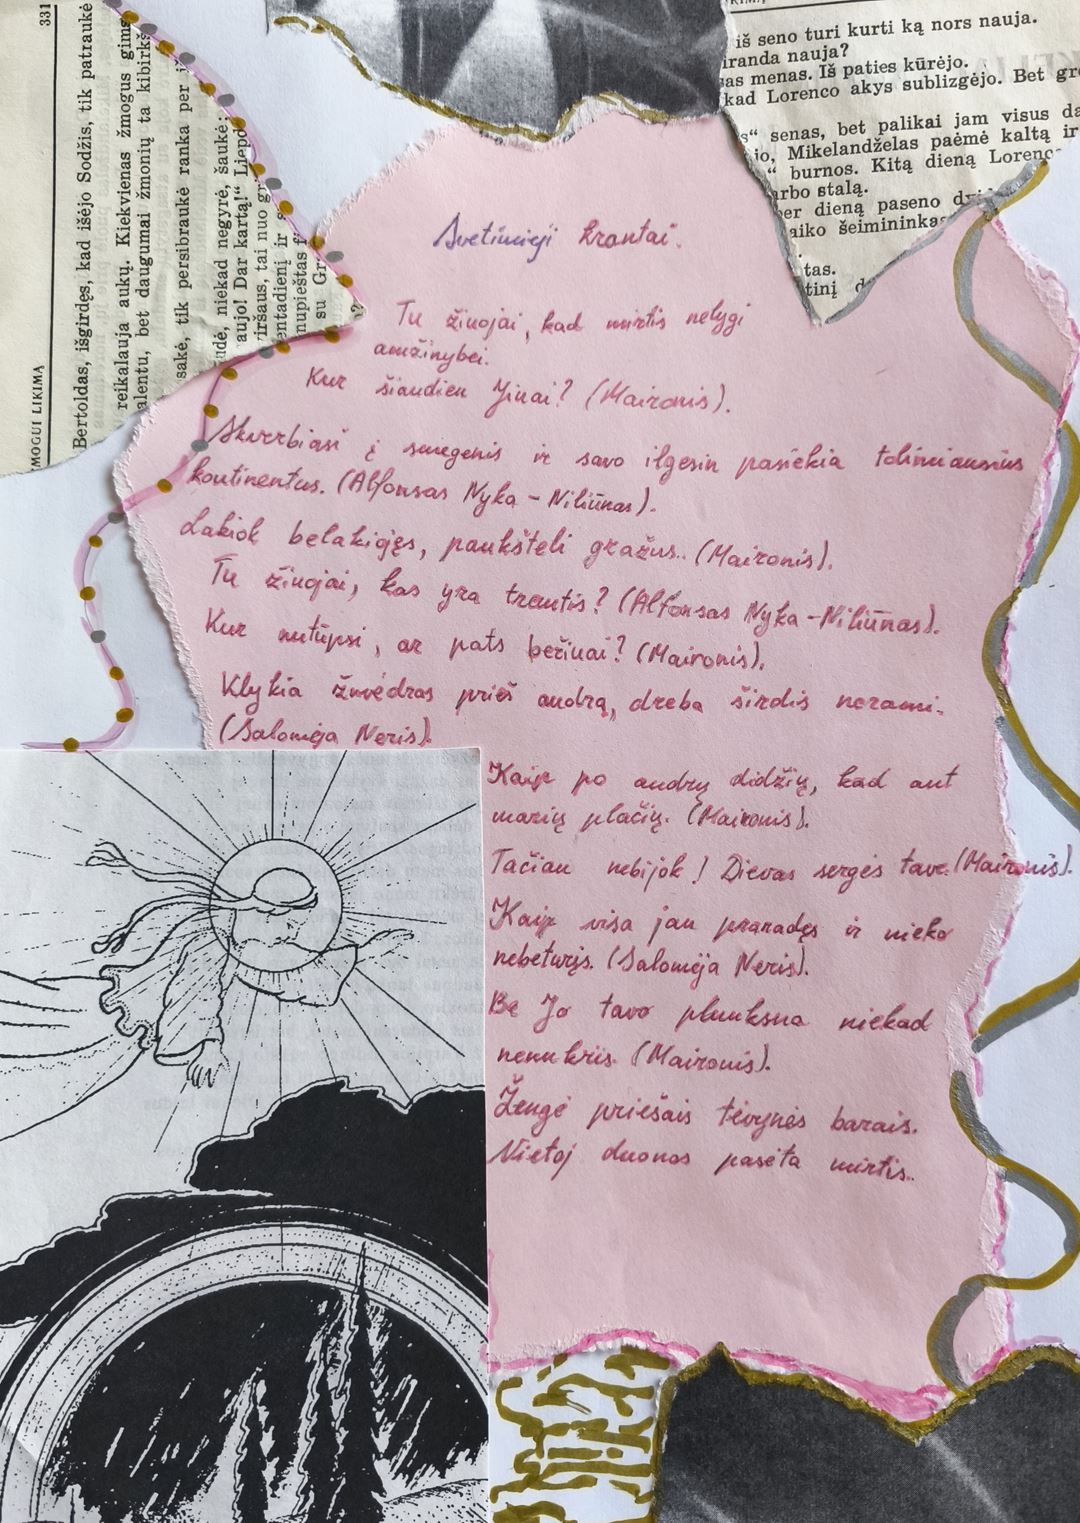 331
MOGUI LIKIMĄ
Bertoldas, išgirdęs, kad išėjo Sodžis, tik patraukė
reikalauja aukų. Kiekvienas žmogus gims
alentu, bet daugumai žmonių ta kibirkš
sakė, tik persibraukė ranka per
udė, niekad negyrė, šaukė:
aujo! Dar kartą!“ Liepd
viršaus, tai nuo
entadienį ir s
nupieštas
su Gr
iš seno turi kurti ką nors nauja.
iranda nauja?
sas menas. Iš paties kūrėjo.
kad Lorenco akys sublizgėjo. Bet gre
s“ senas, bet palikai jam visus da
jo, Mikelandželas paėmė kaltą ir
“ burnos. Kitą dieną Lorenc
arbo stalą.
per dieną paseno
aiko šeimininkas
tas.
tinį
Svetimieji krantai.
Tu žinojai, kad mirtis nelygi
amžinybei.
Kur šiandien Jinai? (Maironis).
Skverbiasi į smegenis ir savo ilgesin pasiekia tolimiausius
kontinentus. (Alfonsas Nyka - Niliūnas).
Lakiok belakiojęs, paukšteli gražus.. (Maironis).
Tu žinojai, kas yra tremtis? (Alfonsas Nyka - Niliūnas).
Kur nutūpsi, ar pats bežinai? (Maironis).
Klykia žuvėdras prieš audrą, dreba širdis nerami.
(Salomėja Neris).
Kaip po audrų didžių, kad ant
marių plačių. (Maironis).
Tačiau nebijok! Dievas sergės tave. (Maironis).
Kaip visa jau praradęs ir nieko
nebeturįs. (Salomėja Neris).
Be Jo tavo plunksna niekad
nenukris. (Maironis).
Žengė priešais tėvynės barais.
Vietoj duonos pasėta mirtis..